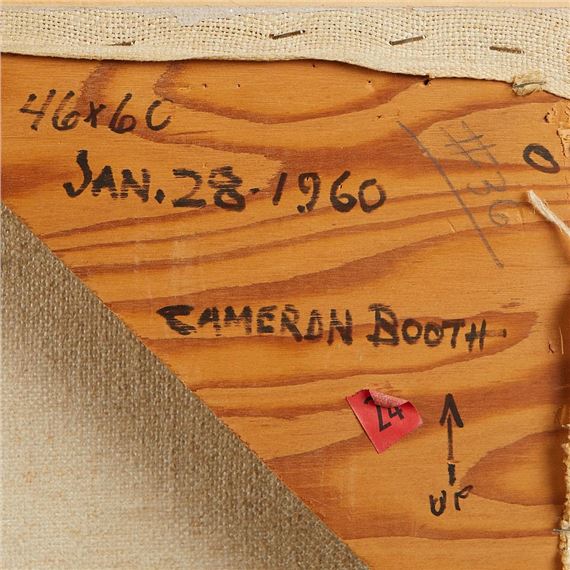 46x60
#36
O
JAN. 28. 1960
CAMERON BOOTH
24
UP